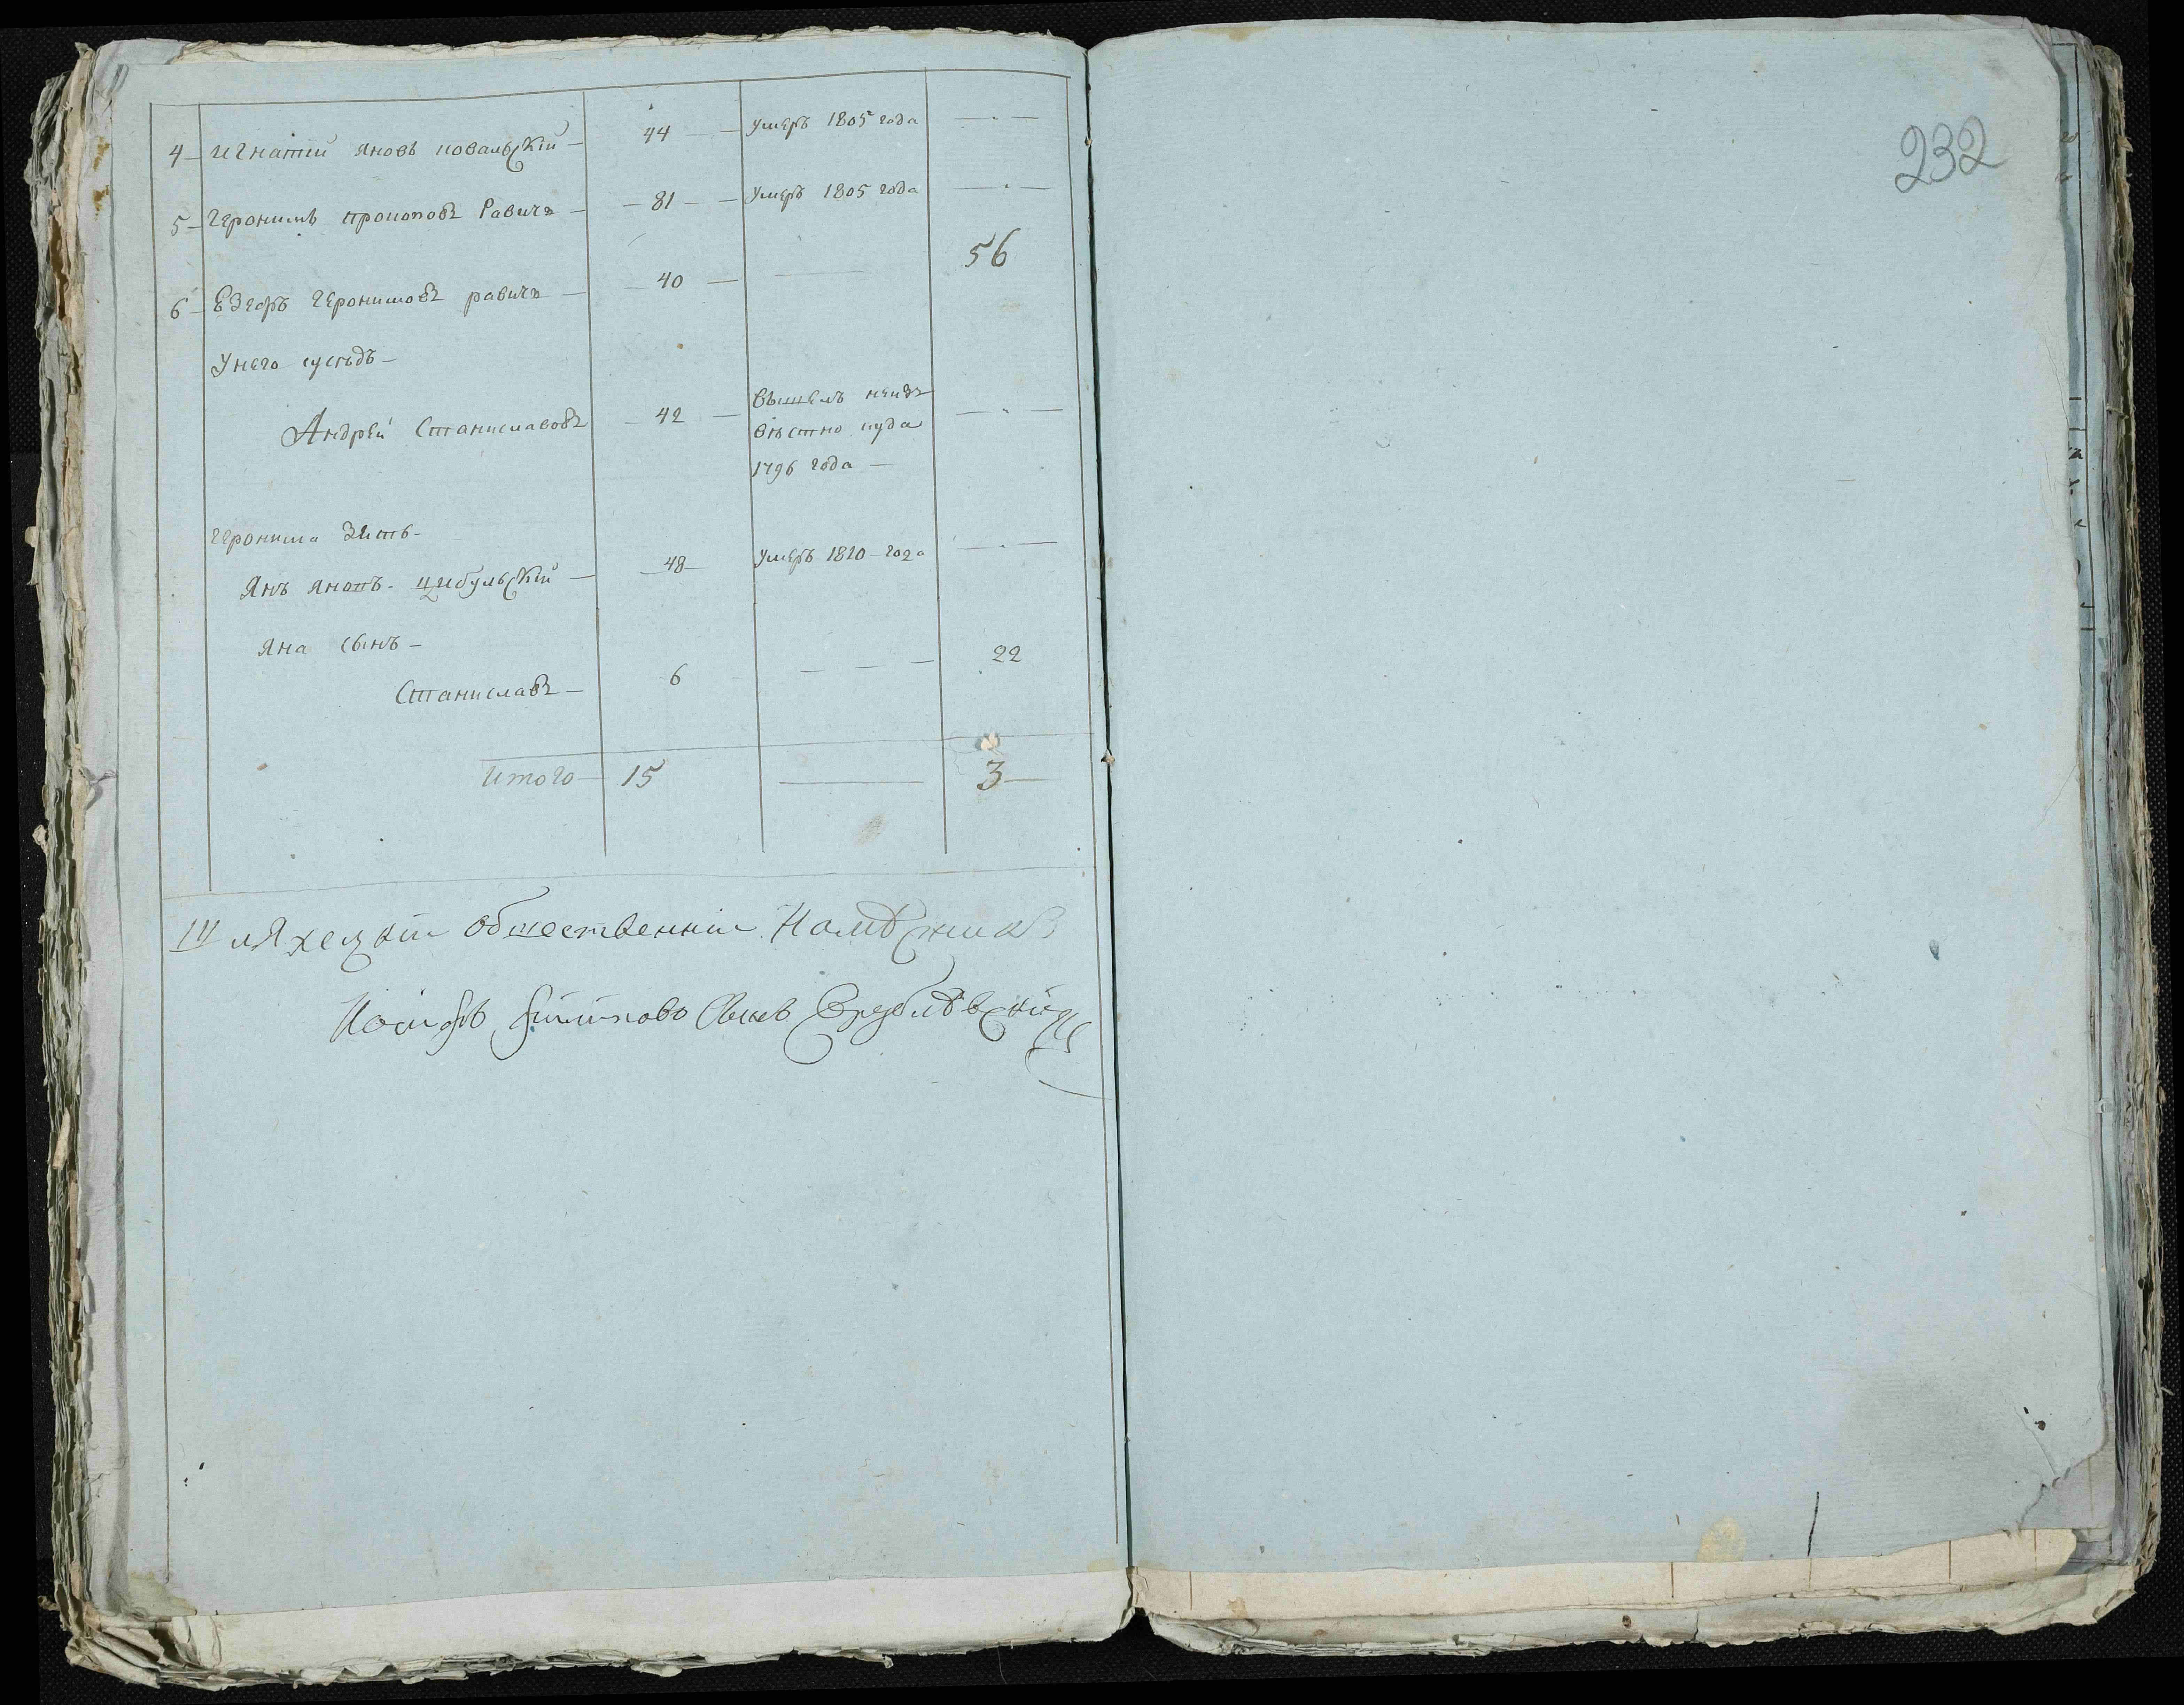 4 — Игнатій Яновъ Ковальскій — 44 — Умеръ 1805 года — " —
5 — Геронимъ Прокоповъ Равичъ — 81 — Умеръ 1805 года — " —
6 — Езефъ Геронимовъ Равичъ — 40 — — 56
У него сусѣдъ —
Андрей Станиславовъ — 42 — вышелъ неиз — " —
вѣстно куда
1796 года —
Геронима зять —
Янъ Яновъ Цибульскій — 48 — Умеръ 1810 года — " —
Яна сынъ —
Станиславъ — 6 — — — 22
Итого — 15 — 3 —
Шляхецкій общественній Намѣсникъ
сынъ Врублѣвскій
232